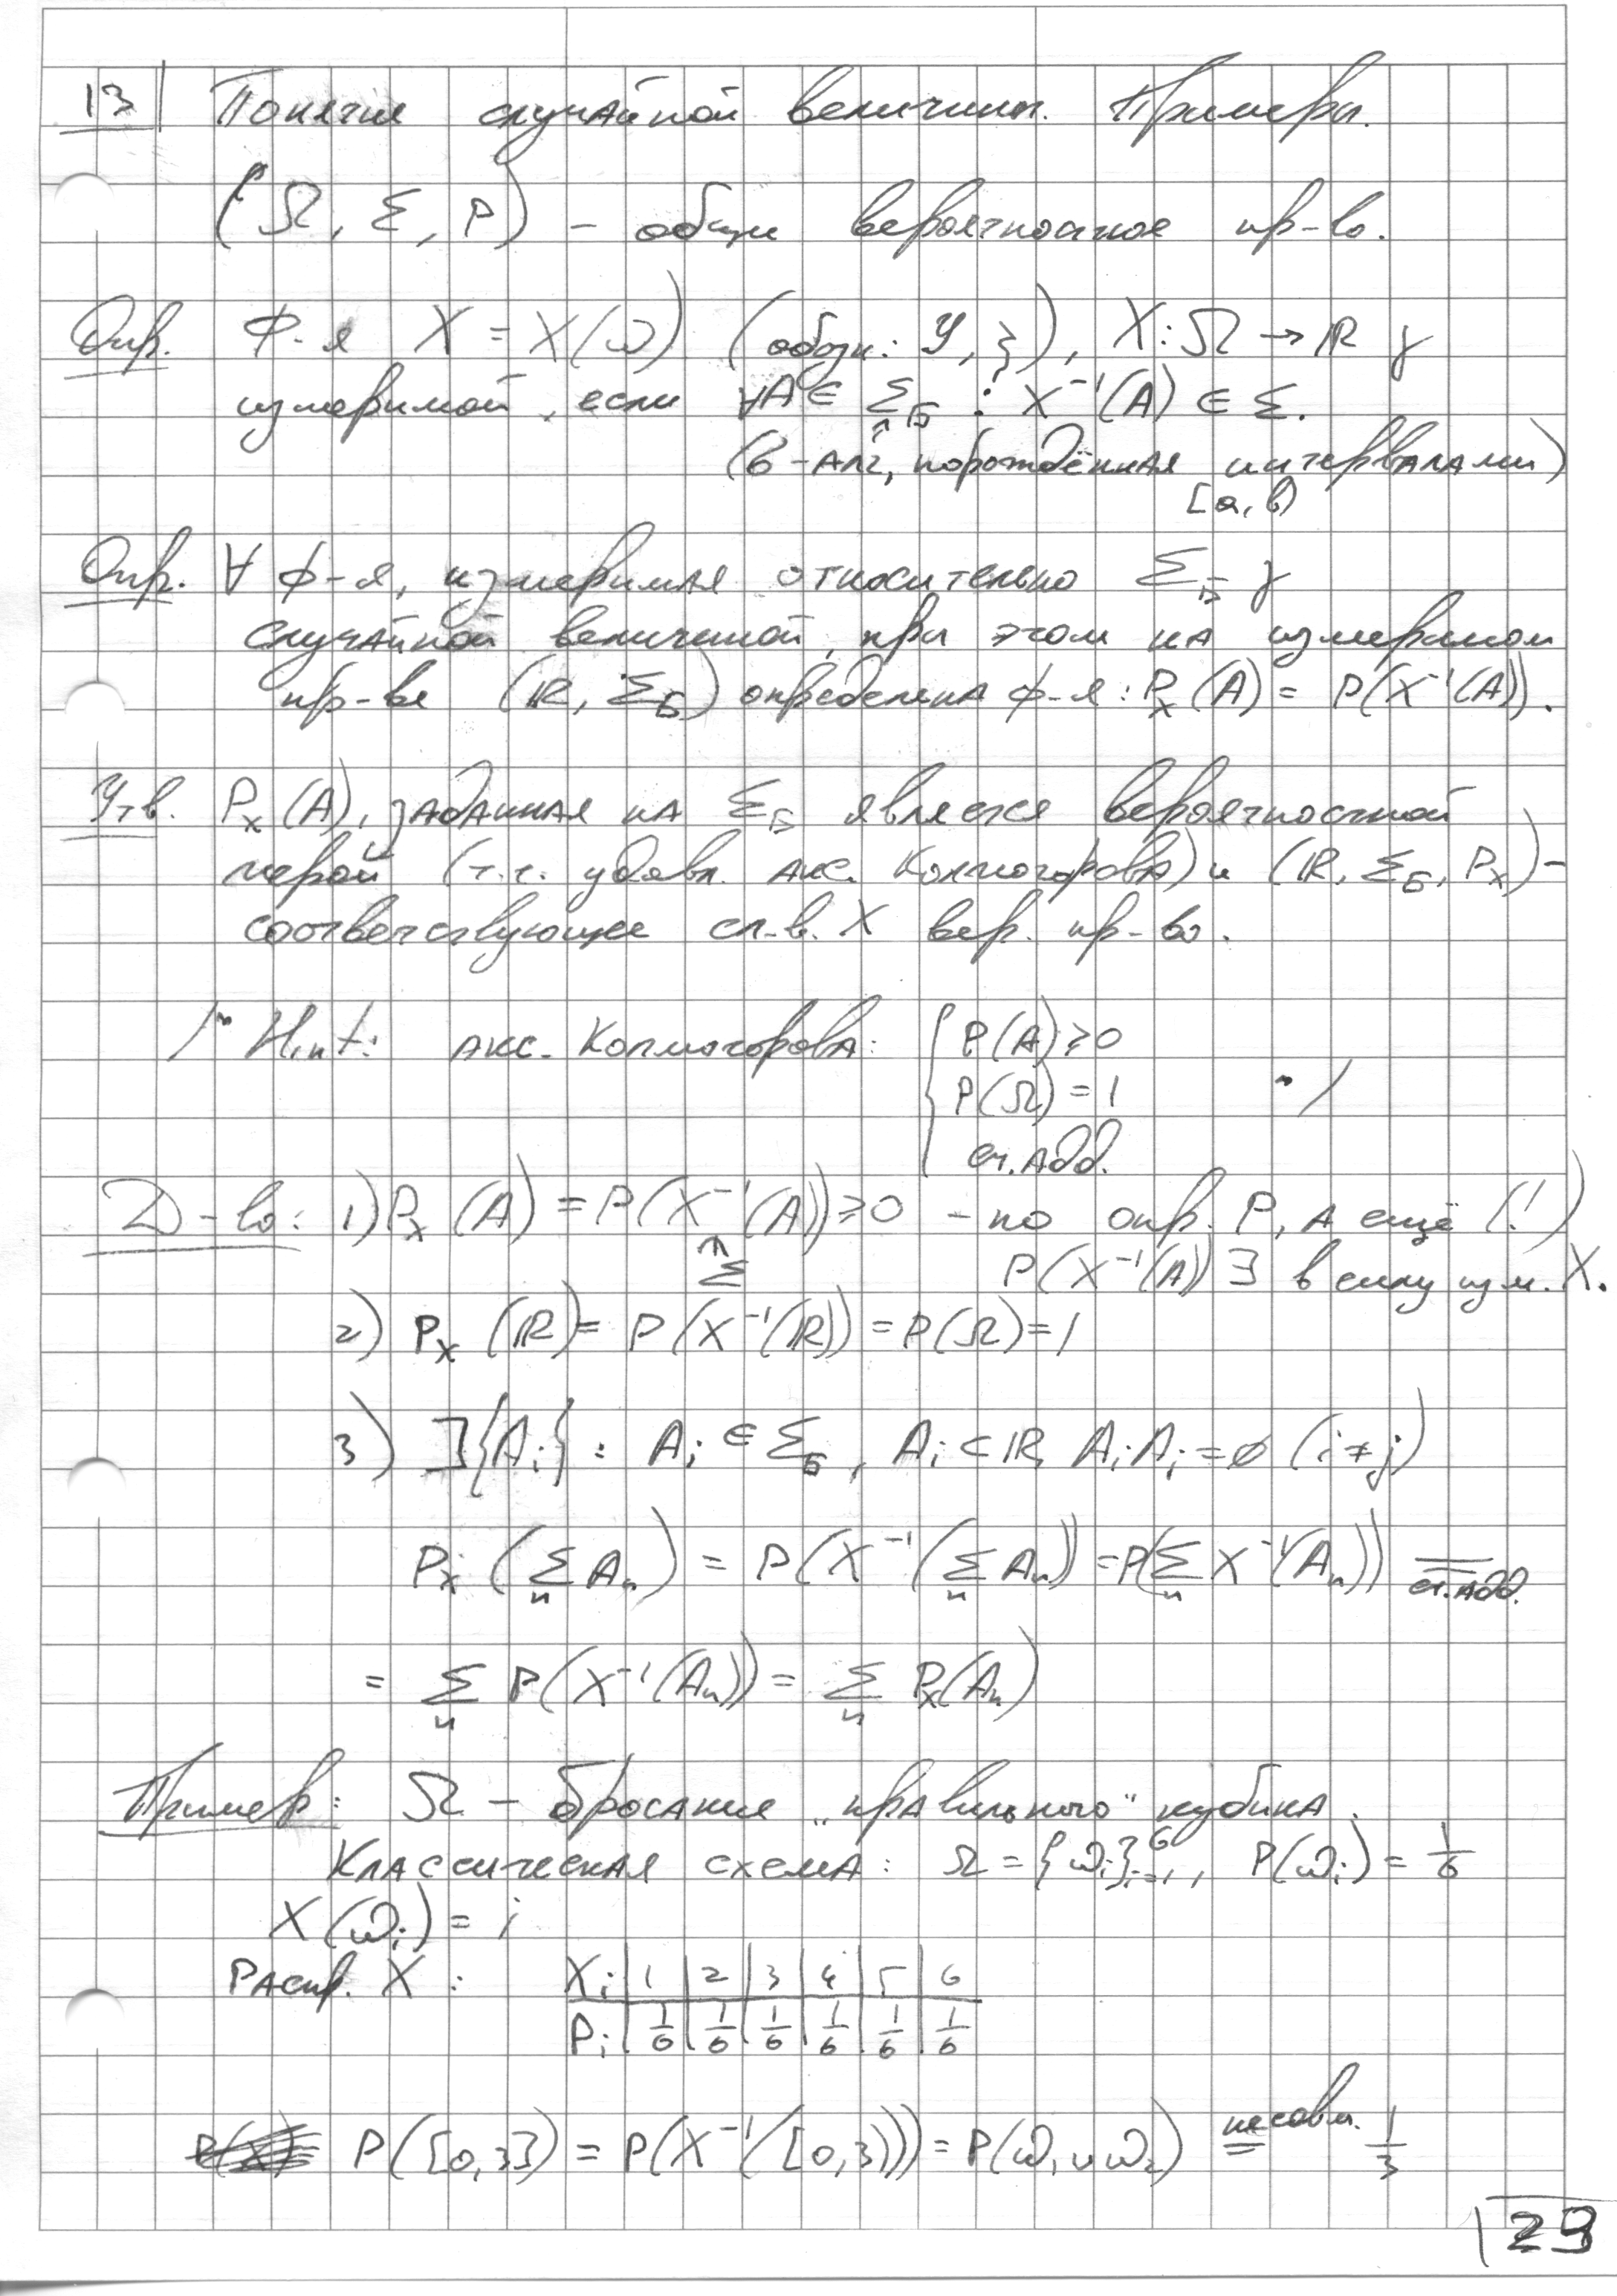 13 Понятие случайной величины. Примеры.
(Ω, Σ, P) – общее вероятностное пр-во.
Опр. Ф-я X = X(ω) (обозн: Y, ξ), X: Ω → ℝ γ
измеримой, если ∀A ∈ Σ_Б : X⁻¹(A) ∈ Σ.
(б-алг, порождённая интервалами)
[a, b)
Опр. ∀ ф-я, измеримая относительно Σ_Б γ
случайной величиной, при этом на измеримом
пр-ве (ℝ, Σ_Б) определена ф-я: P_X(A) = P(X⁻¹(A)).
Утв. P_X(A), заданная на Σ_Б является вероятностной
мерой (т.е. удовл. акс. Колмогорова) и (ℝ, Σ_Б, P_X) –
соответствующее сл.в. X вер. пр-во.
/" Hint: акс. Колмогорова: { P(A) ≥ 0
P(Ω) = 1 "/
сч. адд.
Д-во: 1) P_X(A) = P(X⁻¹(A)) ≥ 0 – по опр. P, а ещё (!)
∈ Σ P(X⁻¹(A)) ∃ в силу изм. X.
2) P_X(ℝ) = P(X⁻¹(ℝ)) = P(Ω) = 1
3) ∃{A_i} : A_i ∈ Σ_Б, A_i ⊂ ℝ, A_i A_j = ∅ (i ≠ j)
P_X(Σ_n A_n) = P(X⁻¹(Σ_n A_n)) = P(Σ_n X⁻¹(A_n)) = сч. адд.
= Σ_n P(X⁻¹(A_n)) = Σ_n P_X(A_n)
Пример: Ω – бросание „правильного" кубика.
Классическая схема: Ω = {ω_i}⁶_{i=1}, P(ω_i) = 1/6
X(ω_i) = i
Распр. X: X_i | 1 | 2 | 3 | 4 | 5 | 6
P_i | 1/6 | 1/6 | 1/6 | 1/6 | 1/6 | 1/6
P([0,3]) = P(X⁻¹([0,3))) = P(ω₁ ∪ ω₂) = несовм. 1/3
29